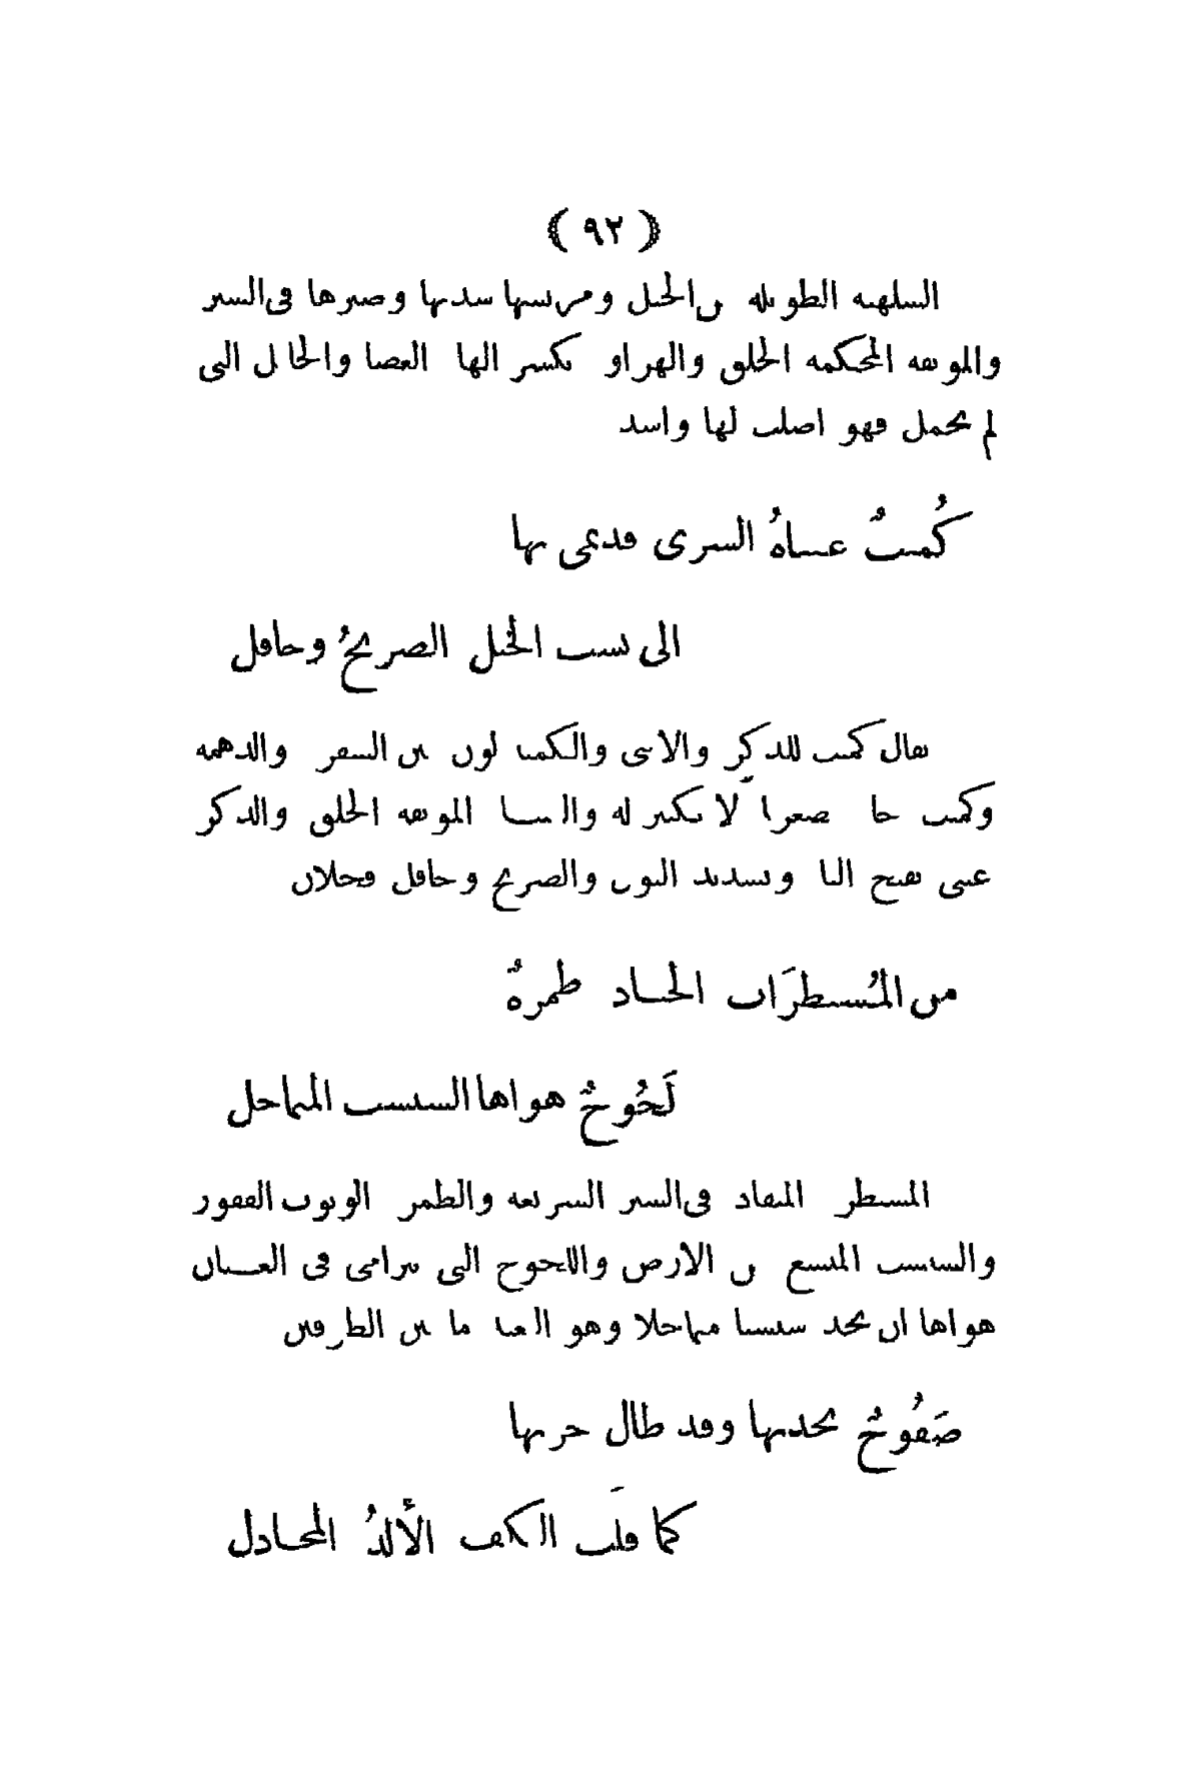 ﴿ ٩٢ ﴾
السلهبة الطويلة من الخيل ومريسها شدتها وصبرها في السير
والموثقة المحكمة الخلق والهراوة تكسير الهاء العصا والحائل التي
لم تحمل فهو اصلب لها واشد
كُميتٌ عبناةُ السرى قد نمى بها
الى نسب الخيل الصريحُ وحافل
يقال كميت للذكر والانثى والكميت لون بين الشقرة والدهمة
وكميت جاء مصغرا لا تكبير له والعبناة الموثقة الخلق والذكر
عبنى بفتح الباء وتشديد النون والصريح وحافل فحلان
من المُسبطرَّات الجياد طمرةٌ
لَجُوجٌ هواها السبسب المتماحل
المسبطر المنقاد في السير السريعة والطمر الوثوب القفور
والسبسب المتسع من الارض واللجوج التي تترامى في العنان
هواها ان تجد سبسبا متماحلا وهو البعيد ما بين الطرفين
صَفُوحٌ بخديها وقد طال جريها
كما قلَّب الكف الألدُّ المجادل